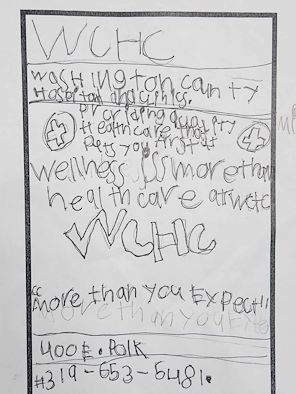 WCHC
washington county
Hospital and clinics.
providing quality
Healthcare that
Puts you first at
wellness is more than
healthcare at wchc
WCHC
"more than you Expect!!
more than you Expe
400 E. Polk
#319-653-5481.